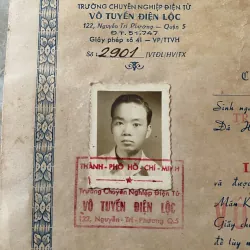 TRƯỜNG CHUYÊN NGHIỆP ĐIỆN TỬ
VÔ TUYẾN ĐIỆN LỘC
122, Nguyễn Tri Phương - Quận 5
Đ.T. 51.747
Giấy phép số 41 - VP/TTVH
Số 2901
C
Sinh ng
Đã
THÀNH-PHỐ HỒ-CHÍ-MINH
Trường Chuyên Nghiệp Điện Tử
VÔ TUYẾN ĐIỆN LỘC
122, Nguyễn-Tri-Phương Q.5
và được
Mãn K
Giấy
để tùy